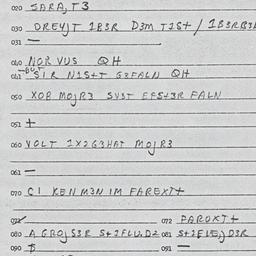 020 IARA, T3
030 DREYJT 1B3R D3M TJST / 1B3RB3
031 —
040 NOR VUS QH
041 BUT SIR NIST+T G3FALN QH
050 XOB MOJR3 SVST EFST3R FALN
051 +
060 VOLT 1X2G3HAT MOJR3
061 —
070 CI KEN M3N IM FAREXT+
071 072 FAROXT+
080 A GROJS3R S+2FLU,D2 081 S+2FLEJD3R
090 091 —